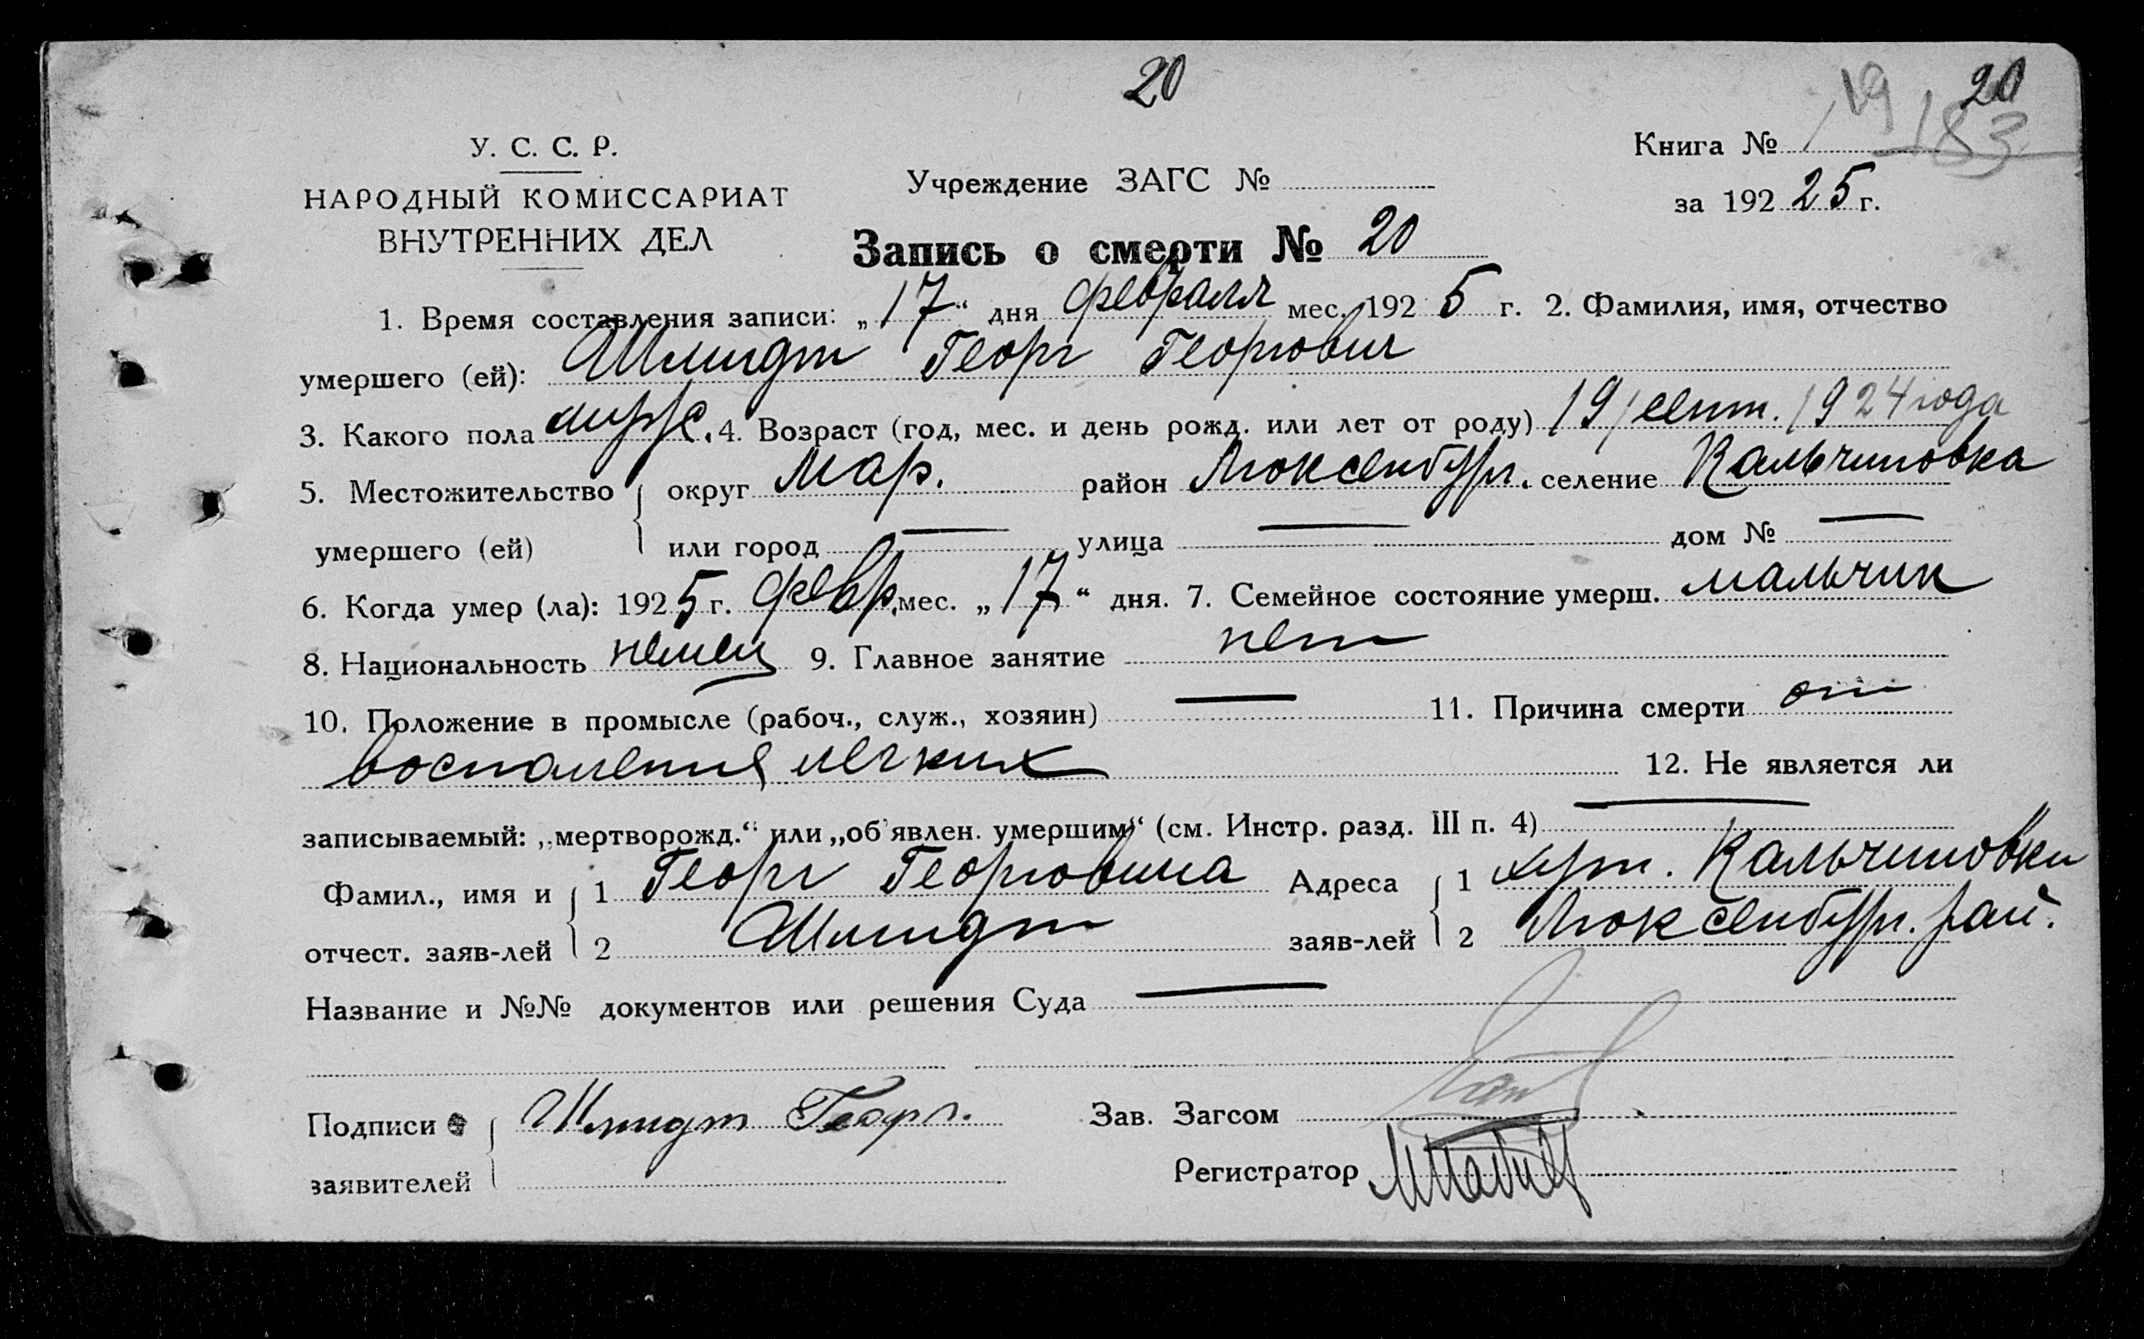 20
19 20
183
У. С. С. Р.
НАРОДНЫЙ КОМИССАРИАТ
ВНУТРЕННИХ ДЕЛ
Учреждение ЗАГС №
Книга №
за 192 25 г.
Запись о смерти № 20
1. Время составления записи: „ 17 “ дня февраля мес. 192 5 г. 2. Фамилия, имя, отчество
умершего (ей): Шмидт Георг Георгович
3. Какого пола муж. 4. Возраст (год, мес. и день рожд. или лет от роду) 19/сент. 1924 года
5. Местожительство округ Мар. район Люксембург. селение Кальчиновка
умершего (ей) или город — улица — дом № —
6. Когда умер (ла): 192 5 г. февр. мес. „ 17 “ дня. 7. Семейное состояние умерш. мальчик
8. Национальность немец 9. Главное занятие нет
10. Положение в промысле (рабоч., служ., хозяин) — 11. Причина смерти от
воспаления легких 12. Не является ли
записываемый: „мертворожд.“ или „об'явлен. умершим“ (см. Инстр. разд. III п. 4) —
Фамил., имя и 1 Георг Георговича Адреса 1 хут. Кальчиновки
отчест. заяв-лей 2 Шмидт заяв-лей 2 Люксембург. рай.
Название и №№ документов или решения Суда —
Подписи Шмидт Георг. Зав. Загсом
заявителей Регистратор